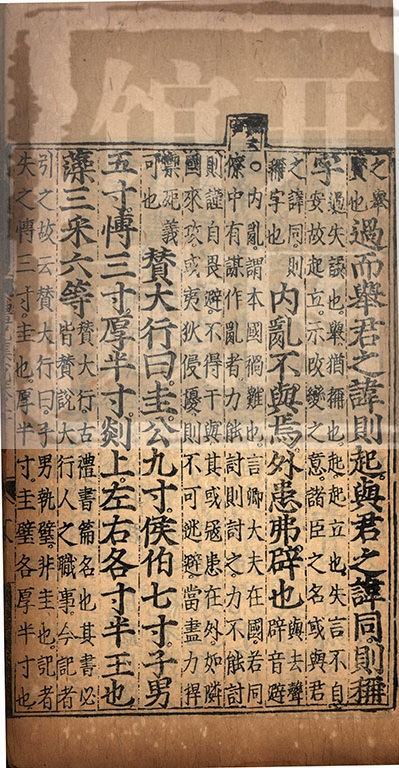 之舉
賢也
過而舉君之諱則起。與君之諱同。則稱
字
過失誤也。舉猶稱也。起起立也。失言不自
安故起立。示改變之意。諸臣之名或與君
之諱同則
稱字也
內亂不與焉。外患弗辟也
與去聲
辟音避
○內亂。謂本國禍難也。言卿大夫在國。若同
僚中有謀作亂者。力能討則討之。力不能討
則謹自畏避。不得干與。其或冦患在外。如隣
國來攻。或夷狄侵擾。則不可逃避。當盡力捍
禦死義
可也
贊大行曰。圭。公九寸。侯伯七寸。子男
五寸。愽三寸。厚半寸。剡上。左右各寸半。玉也
藻三采六等
贊大行。古禮書篇名也。其書必
皆贊說大行人之職事。今記者
引之。故云贊大行曰。子男執璧。非圭也。記者
失之。愽三寸。圭也。厚半寸。圭璧各厚半寸也
館